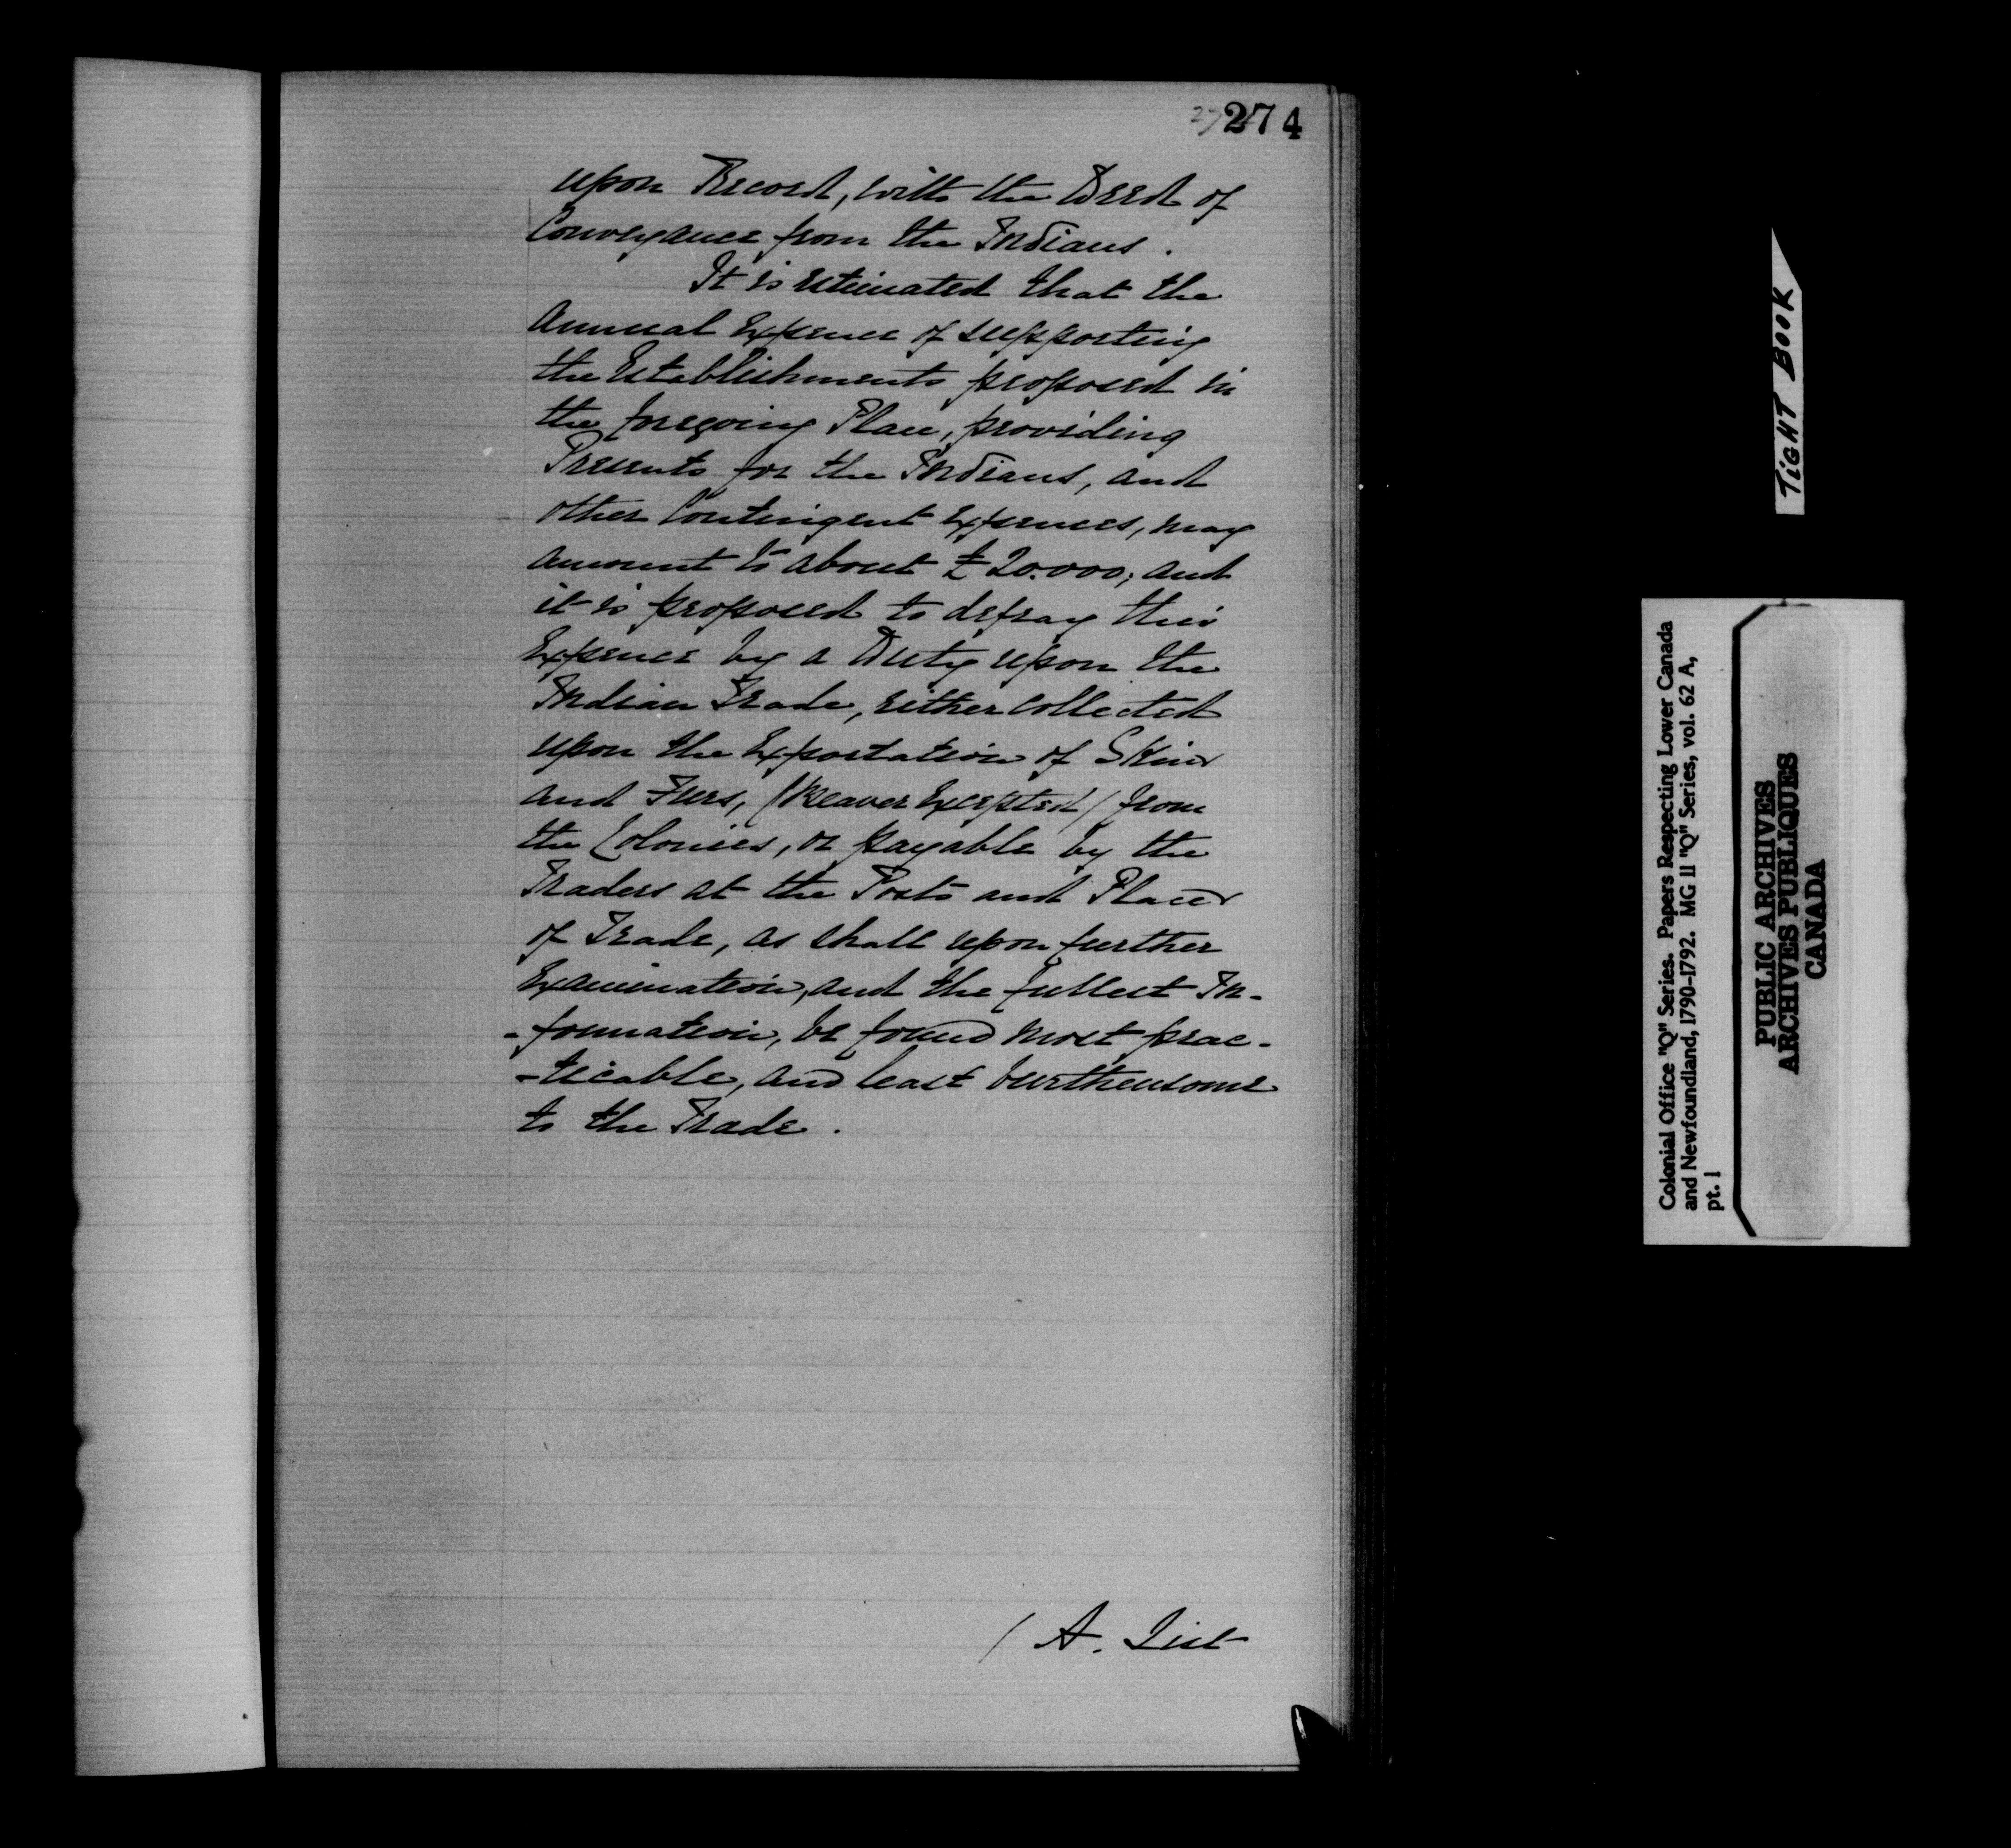 274
upon Record, with the Deed of
Conveyance from the Indians.
It is estimated that the
annual Expence of supporting
the Establishments proposed in
the foregoing Plan, providing
Presents for the Indians, and
other Contingent Expences, may
amount to about £20.000; and
it is proposed to defray this
Expence by a Duty upon the
Indian Trade, either collected
upon the Exportation of Skins
and Furs, (Beaver Excepted) from
the Colonies, or payable by the
Traders at the Posts and Places
of Trade, as shall upon further
Examination, and the fullest In-
-formation, be found most prac-
-ticable, and least burthensome
to the Trade.
/ A. List
TIGHT BOOK
Colonial Office "Q" Series. Papers Respecting Lower Canada
and Newfoundland, 1790-1792. MG 11 "Q" Series, vol. 62 A,
pt. 1
PUBLIC ARCHIVES
ARCHIVES PUBLIQUES
CANADA